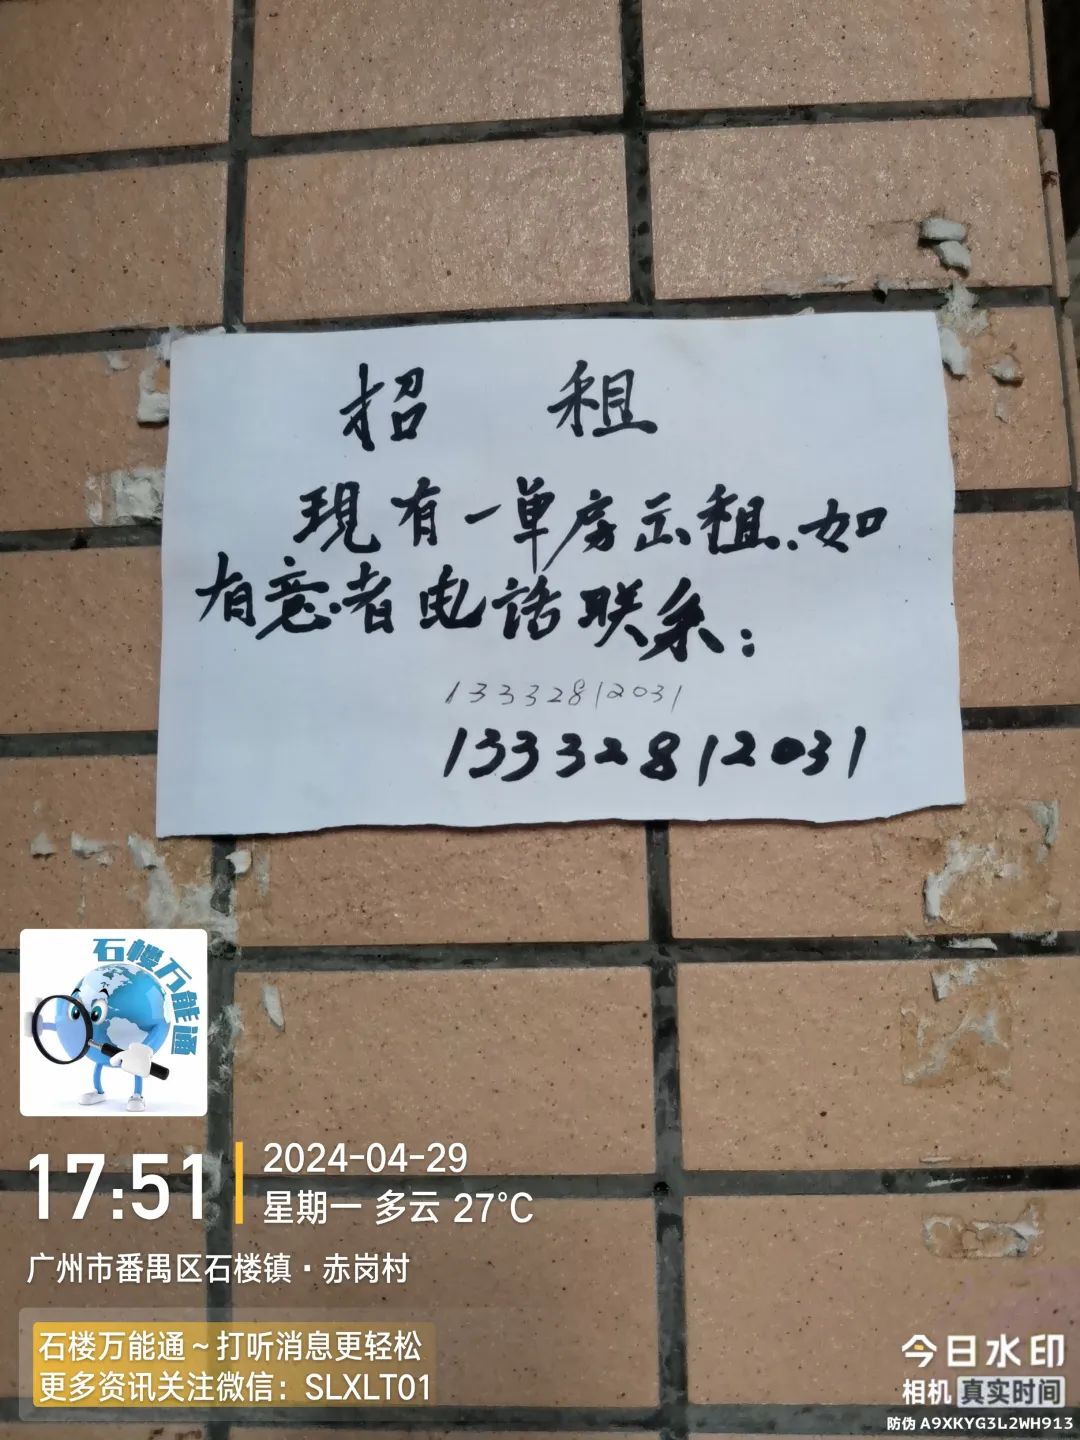 招 租
現有一单房出租.如
有意者电话联系：
13332812031
13332812031
石楼万能通
17:51
2024-04-29
星期一 多云 27°C
广州市番禺区石楼镇·赤岗村
石楼万能通~打听消息更轻松
更多资讯关注微信：SLXLT01
今日水印
相机 真实时间
防伪 A9XKYG3L2WH913